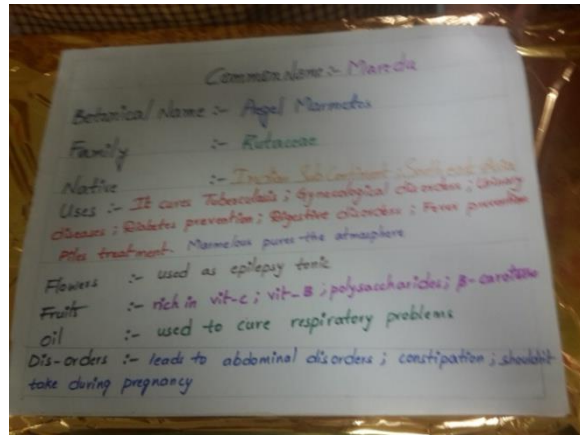 Common Name :- Maredu
Botanical Name :- Aegel Marmelos
Family :- Rutaceae
Native :- Indian Sub Continent ; South east Asia
Uses :- It cures Tuberculosis ; Gynecological disorders ; Urinary
diseases ; Diabetes prevention ; Digestive disorders ; Fever prevention
Piles treatment. Marmelous pures the atmosphere
Flowers :- used as epilepsy tonic
Fruits :- rich in vit-c ; vit-B ; polysaccharides ; β-carotene
oil :- used to cure respiratory problems
Dis-orders :- leads to abdominal disorders ; constipation ; shouldn't
take during pregnancy